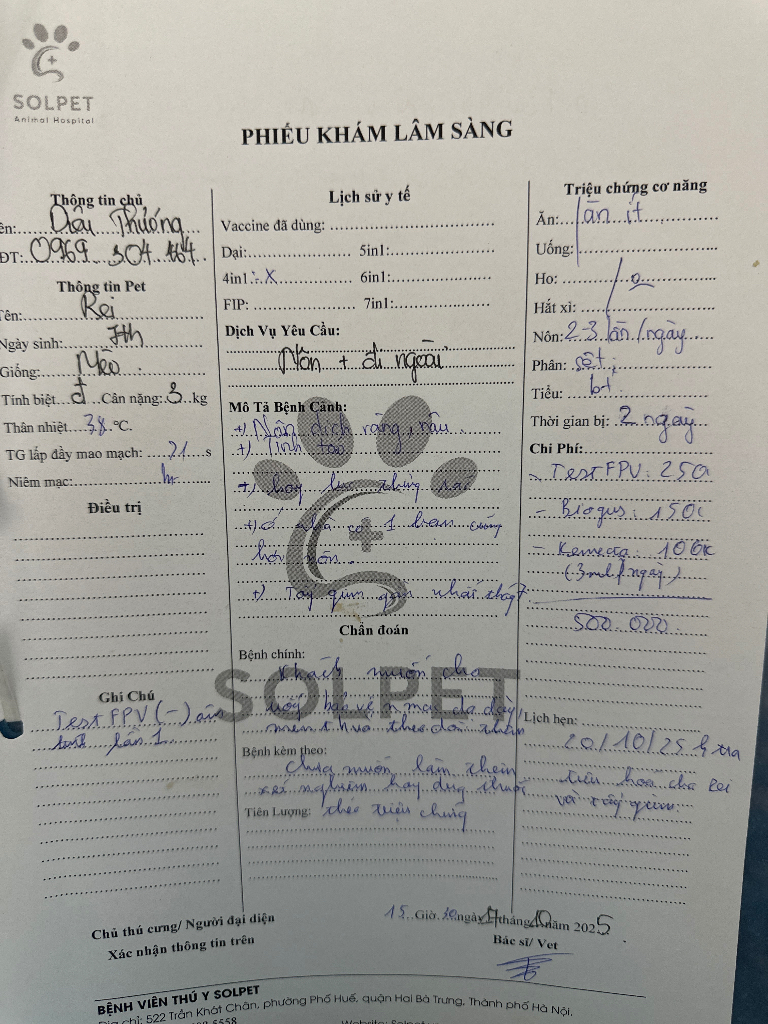 SOLPET
Animal Hospital
PHIẾU KHÁM LÂM SÀNG
Thông tin chủ
ên: Diệu Thương
ĐT: 0969 304 164
Thông tin Pet
Tên: Rei
Ngày sinh: 7th
Giống: Mèo
Tính biệt: đ Cân nặng: 3 kg
Thân nhiệt 38 °C
TG lấp đầy mao mạch: 21 s
Niêm mạc: hr
Điều trị
Ghi Chú
Test FPV (-) âm
lần 1
Lịch sử y tế
Vaccine đã dùng:
Dại: 5in1:
4in1: X 6in1:
FIP: 7in1:
Dịch Vụ Yêu Cầu:
Nôn + đi ngoài
Mô Tả Bệnh Cảnh:
+) Nôn dịch vàng, nâu
+) Tỉnh táo
+) hay lục thùng rác
+) ở nhà có 1 bạn cũng
hơi nôn.
+) Tây qùn gần nhất thấy
Chẩn đoán
Bệnh chính:
khách muốn cho
uống bảo vệ n mạc dạ dày,
men t hoá theo dõi thêm
Bệnh kèm theo:
chưa muốn làm thêm
xét nghiệm hay dùng thuốc
Tiên Lượng: theo triệu chứng
Triệu chứng cơ năng
Ăn: ăn ít
Uống:
Ho: 0
Hắt xì:
Nôn: 2-3 lần/ngày
Phân: sệt;
Tiểu: bt
Thời gian bị: 2 ngày
Chi Phí:
- Test FPV: 250
- Biogus: 150k
- Kemecta: 100k
(3ml/ngày)
500.000
Lịch hẹn:
20/10/25 k tra
tiêu hoá cho Rei
và
Chủ thú cưng/ Người đại diện
Xác nhận thông tin trên
15 Giờ 30 ngày 17 tháng 10 năm 2025
Bác sĩ/ Vet
BỆNH VIÊN THÚ Y SOLPET
Địa chỉ: 522 Trần Khát Chân, phường Phố Huế, quận Hai Bà Trưng, Thành phố Hà Nội.
5558